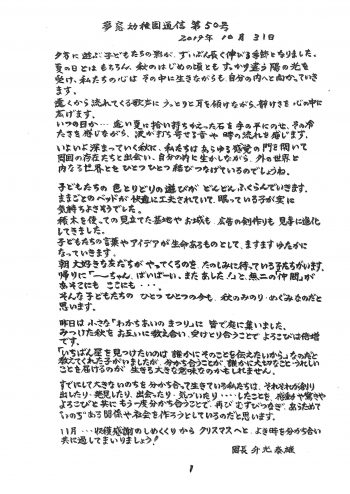 夢窓幼稚園通信 第50号
2019年 10月 31日
夕方に遊ぶ子どもたちの影が、ずいぶん長く伸びる季節となりました。
夏の日とはもちろん、秋のはじめの頃ともすっかり違う陽の光を
受け、私たちの心は その中に生きながらも自分の内へと向かっていき
ます。
遠くから流れてくる歌声に うっとりと耳を傾けながら、静けさを 心の中に
広げます。
いつの日か… 遠い夏に拾い持ちかえった石を手の平にのせ、その冷
たさを感じながら、波が打ち寄せる音や 時の流れを感じます。
いよいよ深まっていく秋に、私たちは あらゆる感覚の門を開いて
周囲の存在たちと出会い、自分の内に生かしながら、外の世界と
内なる世界とを ひとつ ひとつ 結びつなげているのでしょうね。
子どもたちの 色とりどりの遊びが どんどん ふくらんでいきます。
ままごとのベッドが 快適に工夫されていて、眠っている子が 実に
気持ちよさそうでした。
積木を使っての見立てた基地や お城も、広告の剣作りも 見事に進化
してきました。
子どもたちの言葉やアイデアが生命あるものとして、ますます ゆたかに
なっていきます。
朝、大好きな友だちが やってくるのを たのしみに待っている子たちがいます。
帰りに「――ちゃん、ばいばーい、また あした!」と 無二の仲間が
あそこにも ここにも ・・・。
そんな子どもたちの ひとつ ひとつの今も、秋のみのり・めぐみなのだと
思います。
昨日は 小さな「わかちあいの まつり」に 皆で庭に集いました。
みつけた秋を お互いに教え合い、受けとり合うことで よろこびは倍増
です。
「いちばん星を見つけたいのは 誰かにそのことを伝えたいから」なのだと
教えてくれた子がいましたが、分かち合うことが、誰かに大切なこと・うれしい
ことを届けるのが 生きる大きな意味なのかもしれません。
すでにして大きないのちを 分かち合って生きている私たちは、それぞれが創り
出したり・発見したり、出会ったり・気づいたり・・・・したことを、感動や驚きや
よろこびと共に もう一度分かち合うことで、再び むすびつなぎ、あらためて
“いのち”ある関係や社会を作ろうとしているのだと思います。
11月 … 収穫感謝のしめくくりから クリスマスへと、よき時を分かち合い
共に過してまいりましょう!
園長 升光泰雄
1